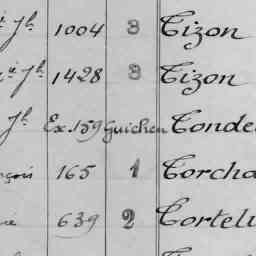 Jh 1004 3 Tizon
Jh 1428 3 Tizon
Jh Ex.159 Guichen Tonde
çois 165 1 Torcha
re 639 2 Tortelu